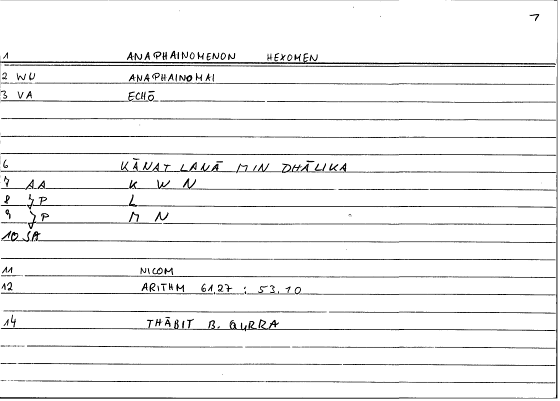 7
1 ANAPHAINOMENON HEXOMEN
2 WU ANAPHAINOMAI
3 VA ECHŌ
6 KĀNAT LANĀ MIN DHĀLIKA
7 AA K W N
8 JP L
9 JP M N
10 SA
11 NICOM
12 ARITHM 61,27 : 53,10
14 THĀBIT B. QURRA